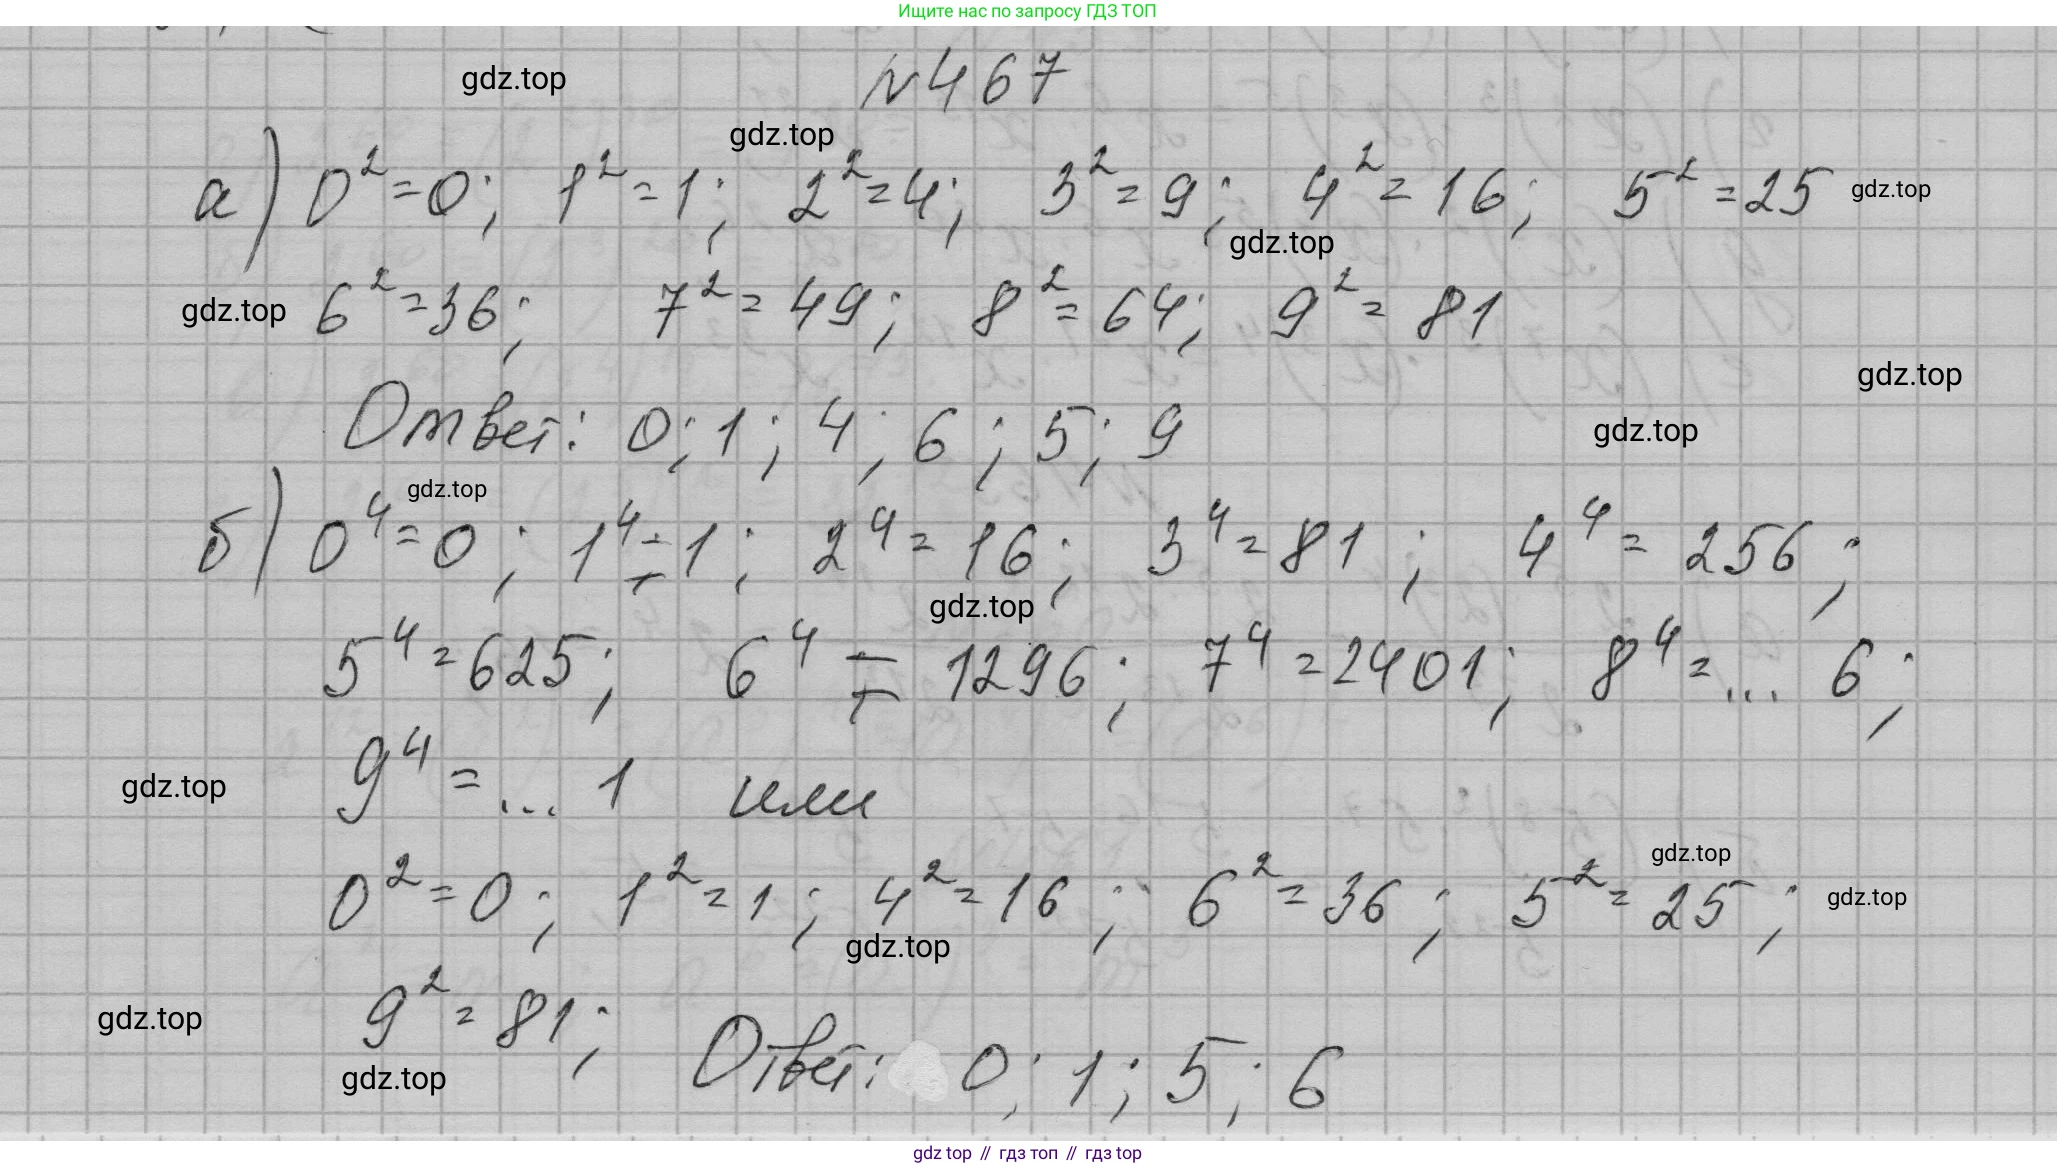 Ищите нас по запросу ГДЗ ТОП
gdz.top
N467
gdz.top
а) 0²=0; 1²=1; 2²=4; 3²=9; 4²=16; 5²=25 gdz.top
gdz.top
gdz.top 6²=36; 7²=49; 8²=64; 9²=81
gdz.top
Ответ: 0; 1; 4; 6; 5; 9 gdz.top
gdz.top
б) 0⁴=0; 1⁴=1; 2⁴=16; 3⁴=81; 4⁴=256;
gdz.top
5⁴=625; 6⁴=1296; 7⁴=2401; 8⁴=... 6;
gdz.top 9⁴=... 1 или
gdz.top
0²=0; 1²=1; 4²=16; 6²=36; 5²=25; gdz.top
gdz.top
gdz.top 9²=81;
gdz.top Ответ: 0; 1; 5; 6
gdz top // гдз топ // гдз top